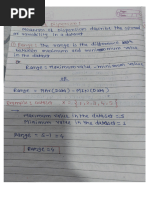 Measures of dispersion describe the spread
or variability in a dataset
Range : The range is the difference
between maximum and minimum
in a dataset.
Range = Maximum value - minimum value
OR
Range = Max (Data) - Min (Data)
Maximum value in the dataset = 8
Minimum value in the dataset = 2
Range = 8-2 = 6
Range = 6